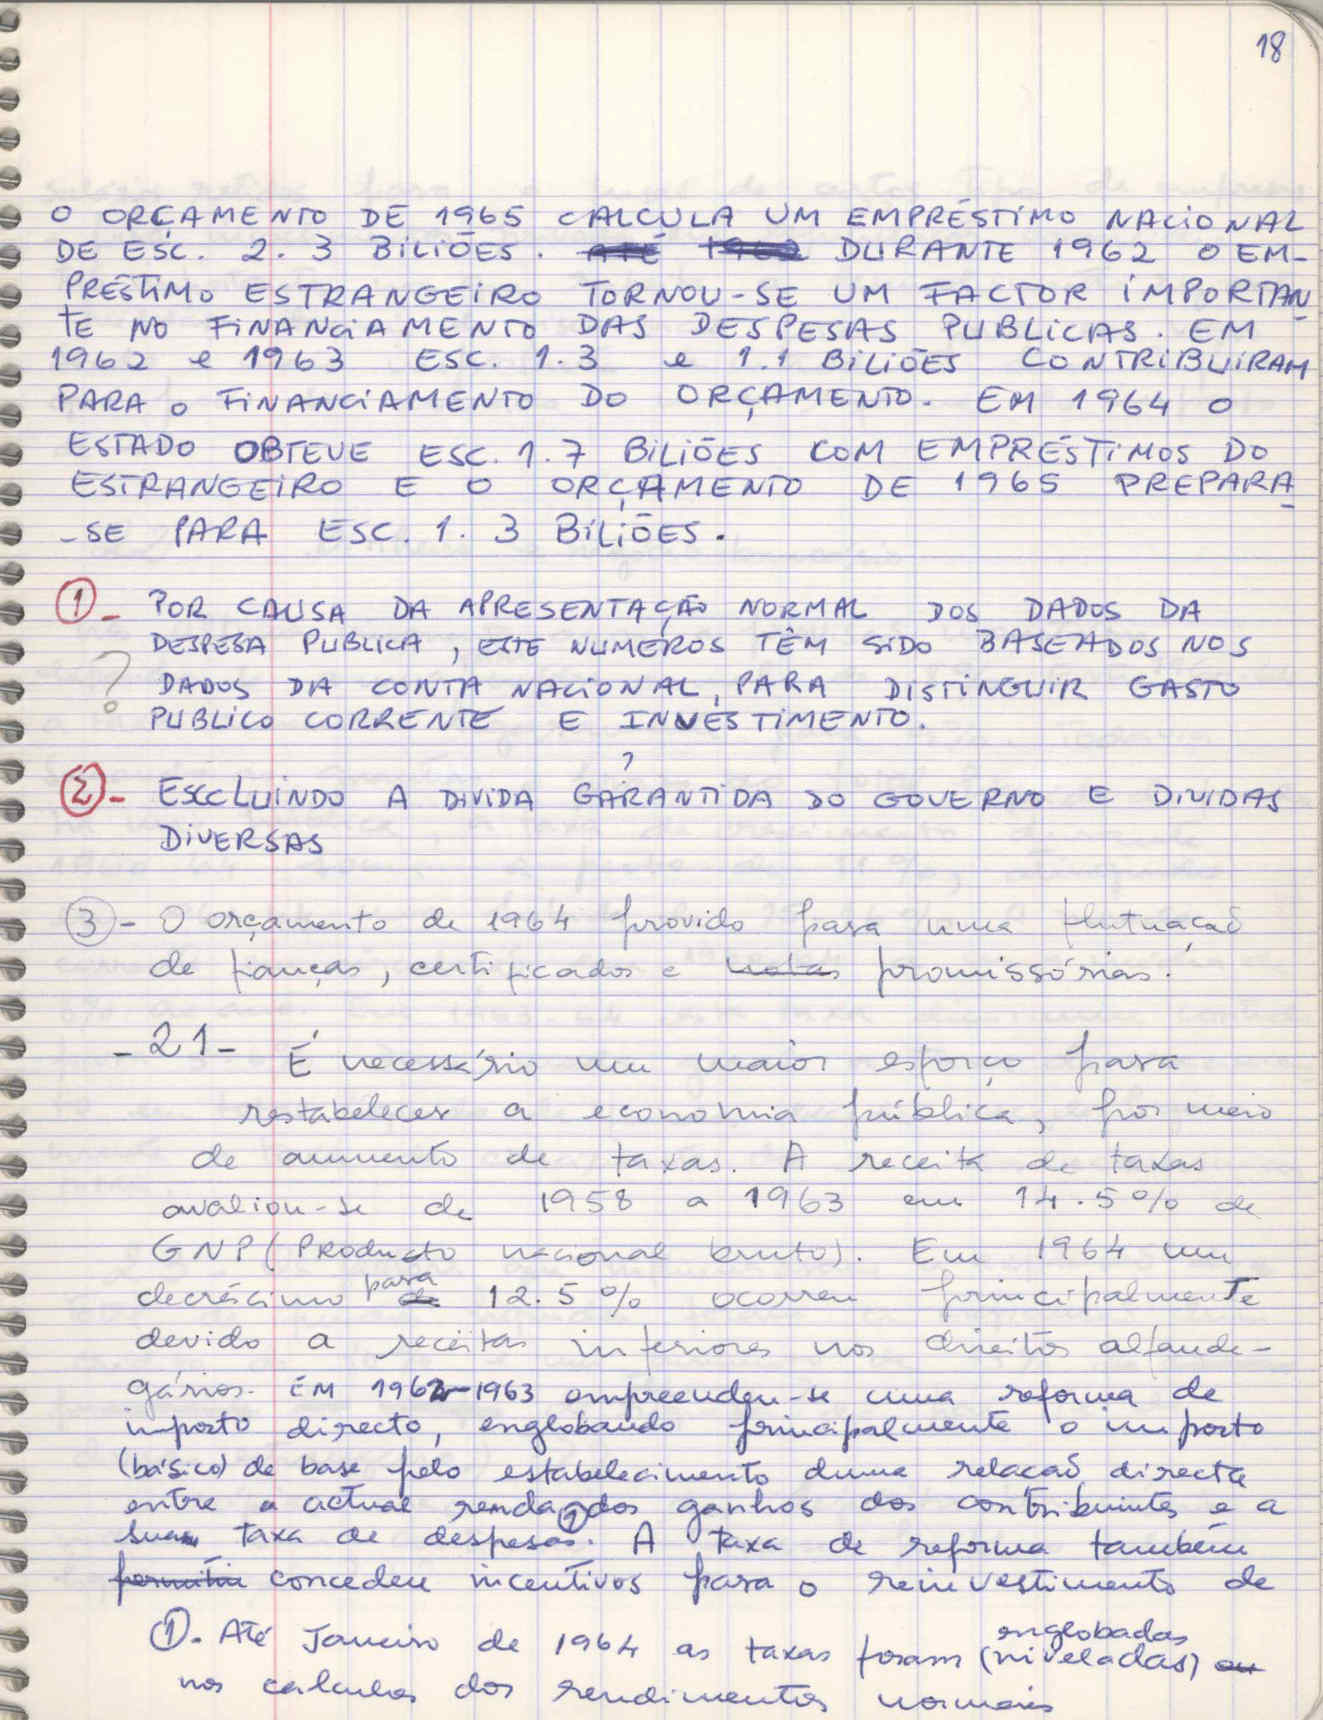 18
O ORÇAMENTO DE 1965 CALCULA UM EMPRÉSTIMO NACIONAL
DE ESC. 2.3 BILIÕES. ATÉ 1962 DURANTE 1962 O EM-
PRÉSTIMO ESTRANGEIRO TORNOU-SE UM FACTOR IMPORTAN
TE NO FINANCIAMENTO DAS DESPESAS PUBLICAS. EM
1962 e 1963 ESC. 1.3 e 1.1 BILIÕES CONTRIBUIRAM
PARA O FINANCIAMENTO DO ORÇAMENTO. EM 1964 O
ESTADO OBTEVE ESC. 1.7 BILIÕES COM EMPRÉSTIMOS DO
ESTRANGEIRO E O ORÇAMENTO DE 1965 PREPARA
-SE PARA ESC. 1.3 BILIÕES.
1- POR CAUSA DA APRESENTAÇÃO NORMAL DOS DADOS DA
DESPESA PUBLICA, ESTE NUMEROS TÊM SIDO BASEADOS NOS
? DADOS DA CONTA NACIONAL, PARA DISTINGUIR GASTO
PUBLICO CORRENTE E INVESTIMENTO.
?
2- ESCCLUINDO A DIVIDA GARANTIDA DO GOVERNO E DIVIDAS
DIVERSAS
3- O orçamento de 1964 provido para uma flutuação
de fianças, certificados e notas promissórias.
-21- É necessário um maior esforço para
restabelecer a economia pública, por meio
de aumento de taxas. A receita de taxas
avaliou-se de 1958 a 1963 em 14.5% de
GNP (Producto nacional bruto). Em 1964 um
decréscimo de para 12.5% ocorreu principalmente
devido a receitas inferiores nos direitos alfande-
gários. EM 1962-1963 empreendeu-se uma reforma de
imposto directo, englobando principalmente o imposto
(básico) de base pelo estabelecimento duma relação directa
entre a actual renda dos ganhos dos contribuintes e a
sua taxa de despesas. A taxa de reforma também
permitiu concedeu incentivos para o reinvestimento de
1. Até Janeiro de 1964 as taxas foram (niveladas) englobadas
nos calculos dos rendimentos normais